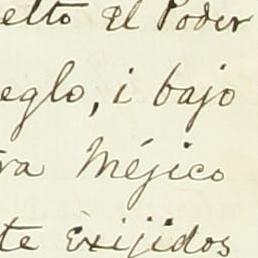 elto el Poder
eglo, i bajo
ra Méjico
te exijidos